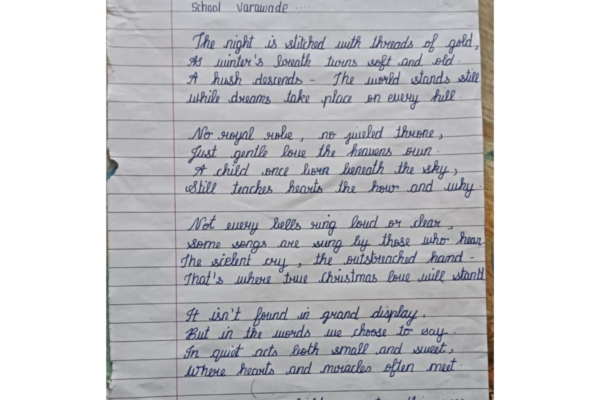 School Varawade
The night is stitched with threads of gold,
As winter's breath turns soft and old.
A hush descends - The world stands still
while dreams take place on every hill

No royal robe, no jiweled throne,
Just gentle love the heavens own.
A child once born beneath the sky,
Still teaches hearts the how and why.

Not every bells ring loud or clear,
some songs are sung by those who hear
The sielent cry, the outstreached hand -
That's where true Christmas love will stand

It isn't found in grand display,
But in the words we choose to say.
In quiet acts both small and sweet,
Where hearts and miracles often meet.